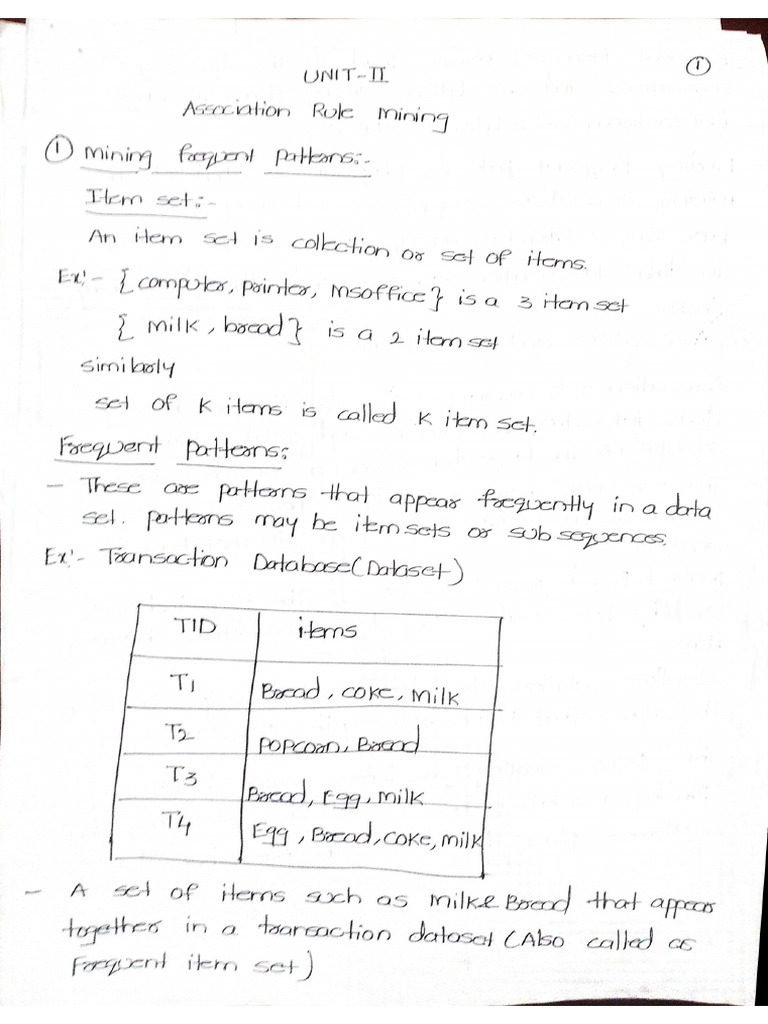 ①
UNIT-II
Association Rule mining
① mining frequent patterns:-
Item set:-
An item set is collection or set of items.
Ex:- {computer, printer, msoffice} is a 3 item set
{ milk, bread} is a 2 item set
similarly
set of K items is called K item set.
Frequent Patterns:
- These are patterns that appear frequently in a data
set. patterns may be itemsets or sub sequences.
Ex:- Transaction Database(Dataset)
TID items
T1 Bread, coke, milk
T2 POPcorn, Bread
T3 Bread, Egg, milk
T4 Egg, Bread, coke, milk
- A set of items such as milk & Bread that appear
together in a transaction dataset (Also called as
Frequent item set)